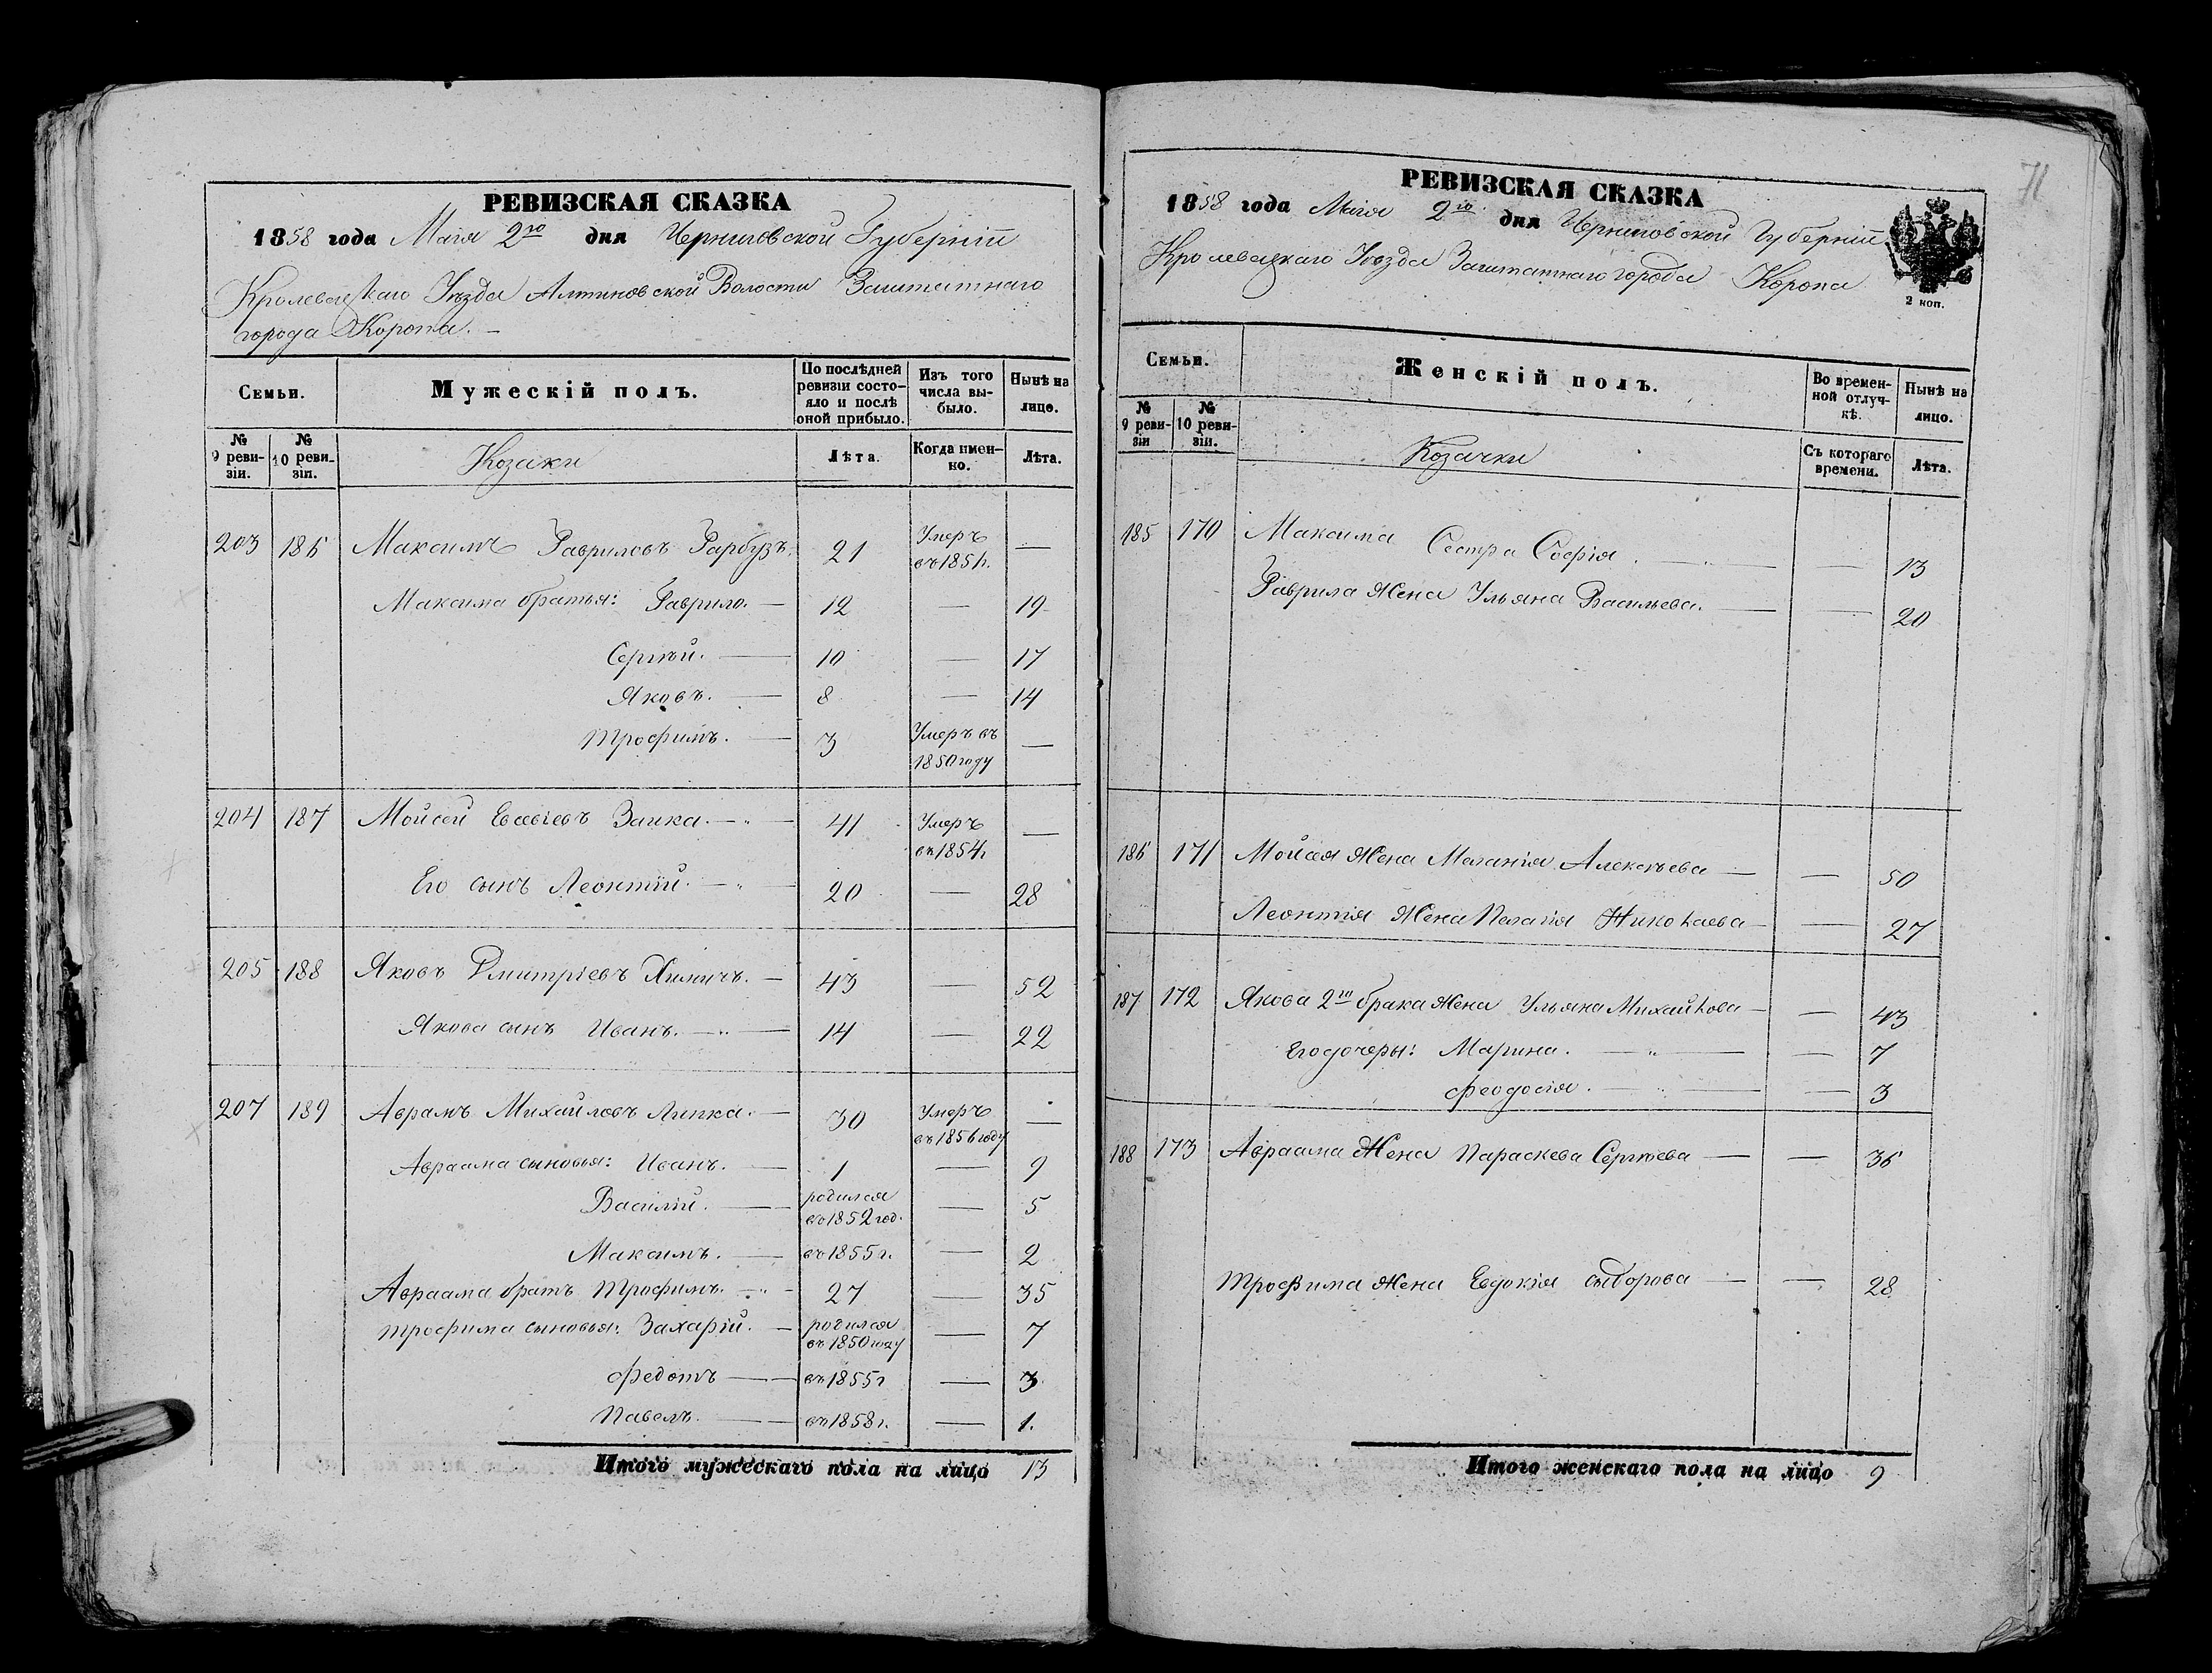 РЕВИЗСКАЯ СКАЗКА
1858 года Мая 2го дня Черниговской Губерніи
Кролевецкаго Уѣзда Алтиновской Волости Заштатнаго
города Коропа. –
Семьи. Мужескій полъ. По послѣдней ревизіи состояло и послѣ оной прибыло. Изъ того числа выбыло. Нынѣ на лицо.
№ 9 ревизіи. № 10 ревизіи. Козаки Лѣта. Когда именно. Лѣта.
203 186 Максимъ Гавриловъ Гарбузъ. 21 Умеръ въ 1851г. —
Максима братья: Гаврило. — 12 — 19
Сергѣй. — 10 — 17
Яковъ. — 8 — 14
Трофимъ. — 3 Умеръ въ 1850 году —
204 187 Мойсей Евсѣевъ Заика. — 41 Умеръ въ 1854г —
Его сынъ Леонтій. — 20 — 28
205 188 Яковъ Дмитріевъ Химичъ. — 43 — 52
Якова сынъ Иванъ. — 14 — 22
207 189 Аврамъ Михайловъ Липка. — 30 Умеръ въ 1856 году —
Авраама сыновья: Иванъ. — 1 — 9
Василій. — родился въ 1852 год. — 5
Максимъ. — въ 1855г. — 2
Авраама братъ Трофимъ. — 27 — 35
Трофима сыновья: Захарій. — родился въ 1850 году — 7
Федотъ — въ 1855г — 3
Павелъ. — въ 1858г. — 1.
Итого мужескаго пола на лицо 13
71
РЕВИЗСКАЯ СКАЗКА
1858 года Мая 2го дня Черниговской Губерніи
Кролевецкаго Уѣзда Заштатнаго города Коропа
2 коп.
Семьи. Женскій полъ. Во временной отлучкѣ. Нынѣ на лицо.
№ 9 ревизіи № 10 ревизіи. Козачки Съ котораго времени. Лѣта.
185 170 Максима Сестра Софія. — — 13
Гаврила Жена Ульяна Васильева. — — 20
186 171 Мойсея Жена Меланія Алексѣева — — 50
Леонтія Жена Пелагія Николаева — — 27
187 172 Якова 2го брака Жена Ульяна Михайлова — — 43
Его дочеры: Марина. — — 7
Феодосія. — — 3
188 173 Авраама Жена Параскева Сергѣева — — 36
Трофима Жена Евдокія Сидорова — — 28
Итого женскаго пола на лицо 9